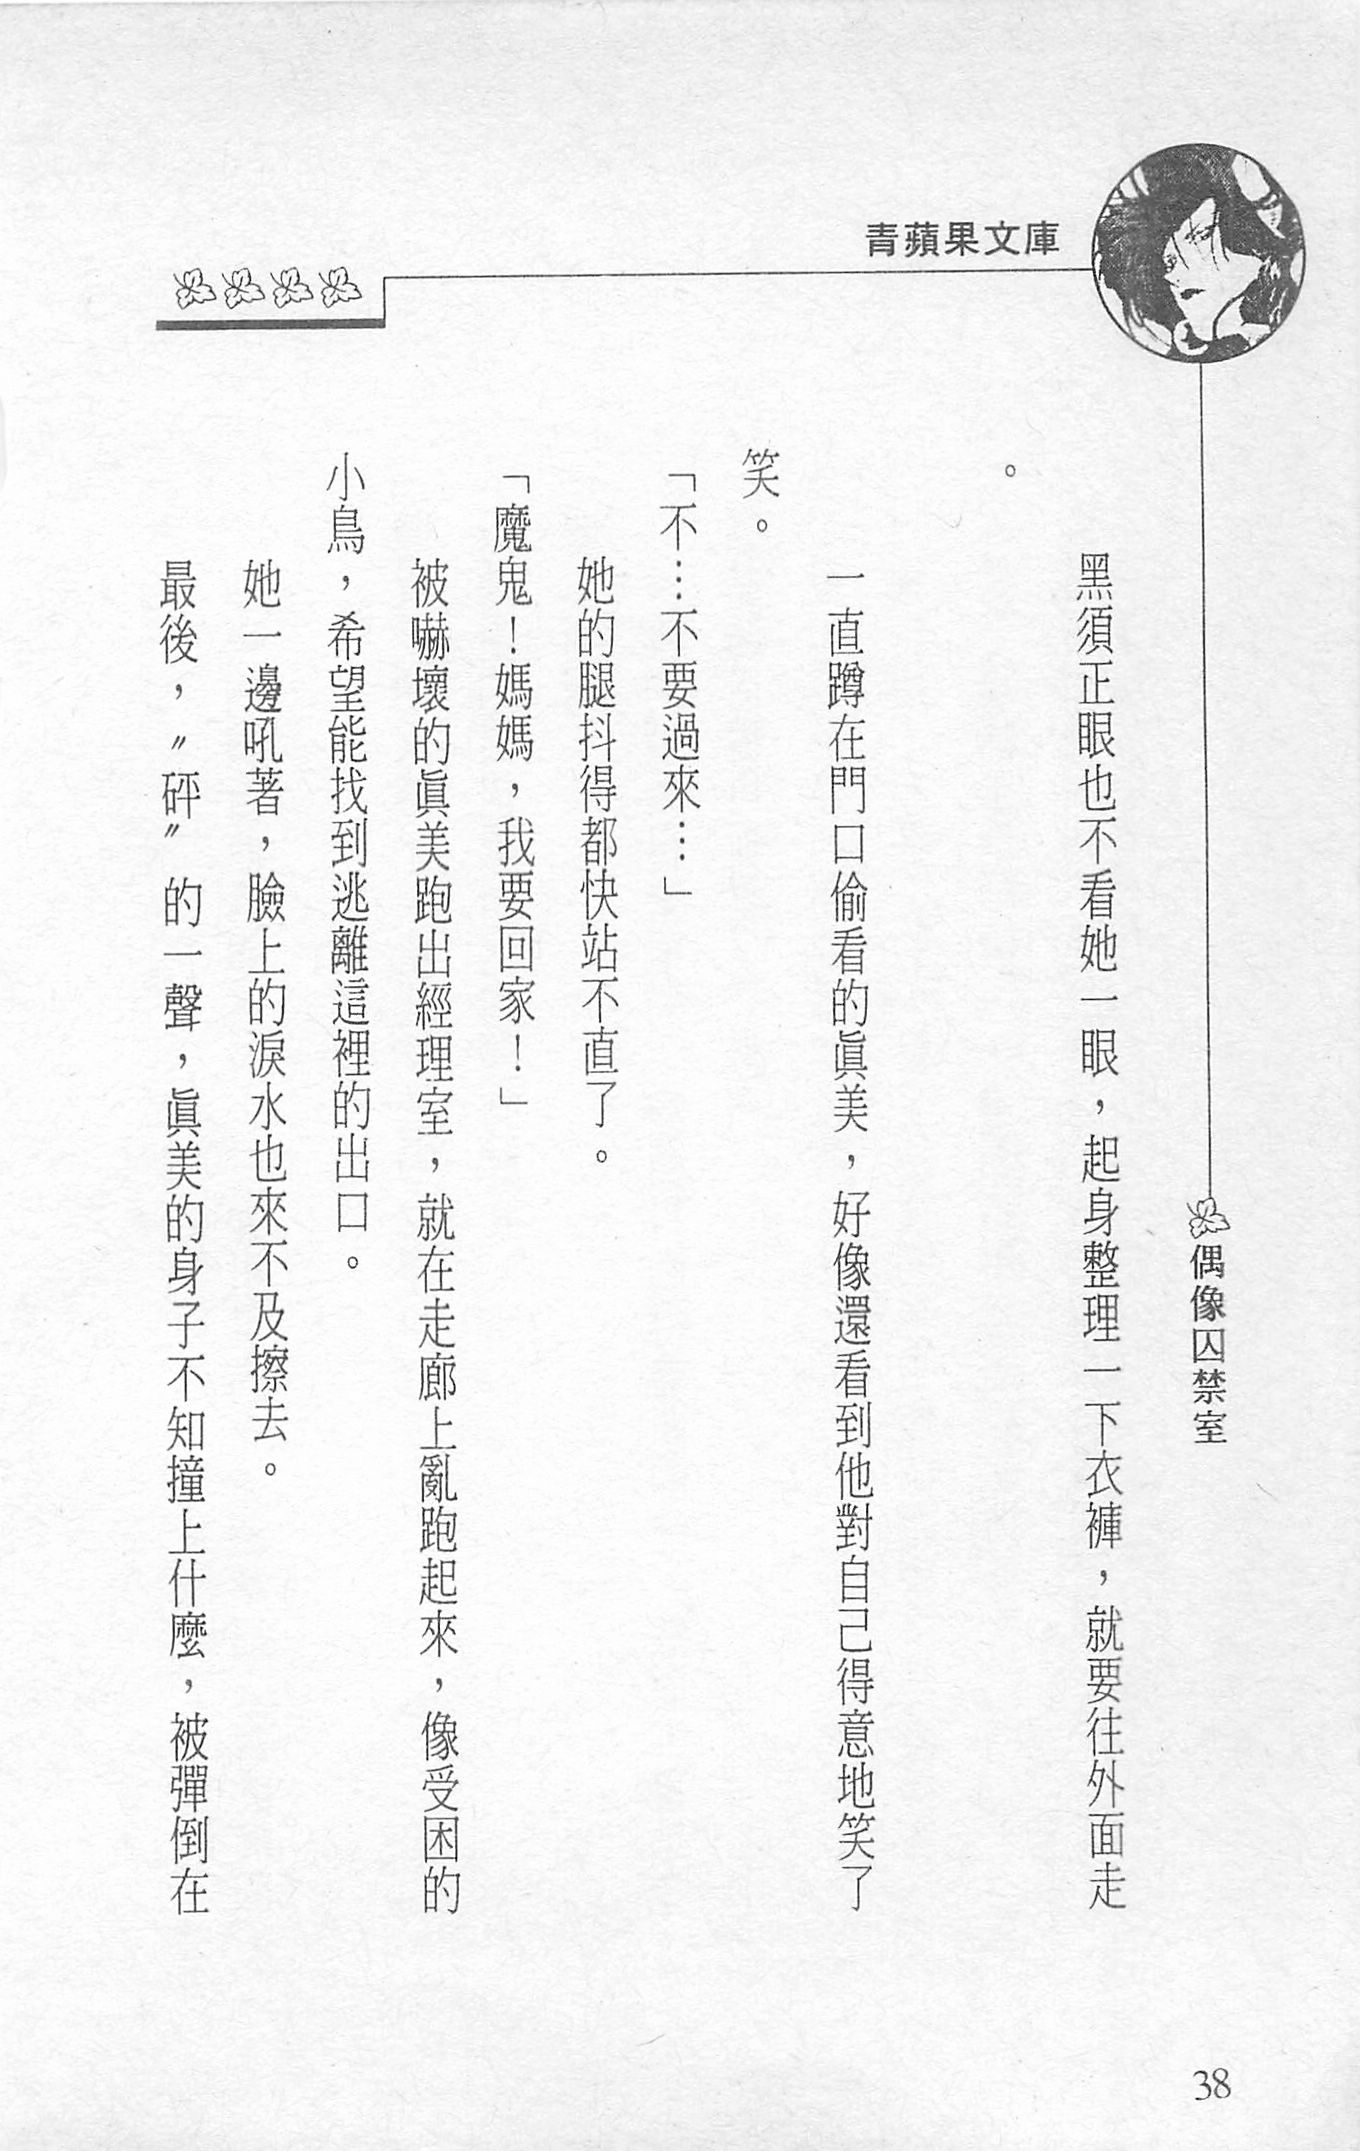 青蘋果文庫
偶像囚禁室
黑須正眼也不看她一眼，起身整理一下衣褲，就要往外面走
。
一直蹲在門口偷看的眞美，好像還看到他對自己得意地笑了
笑。
「不…不要過來…」
她的腿抖得都快站不直了。
「魔鬼！媽媽，我要回家！」
被嚇壞的眞美跑出經理室，就在走廊上亂跑起來，像受困的
小鳥，希望能找到逃離這裡的出口。
她一邊吼著，臉上的淚水也來不及擦去。
最後，〝砰〞的一聲，眞美的身子不知撞上什麼，被彈倒在
38